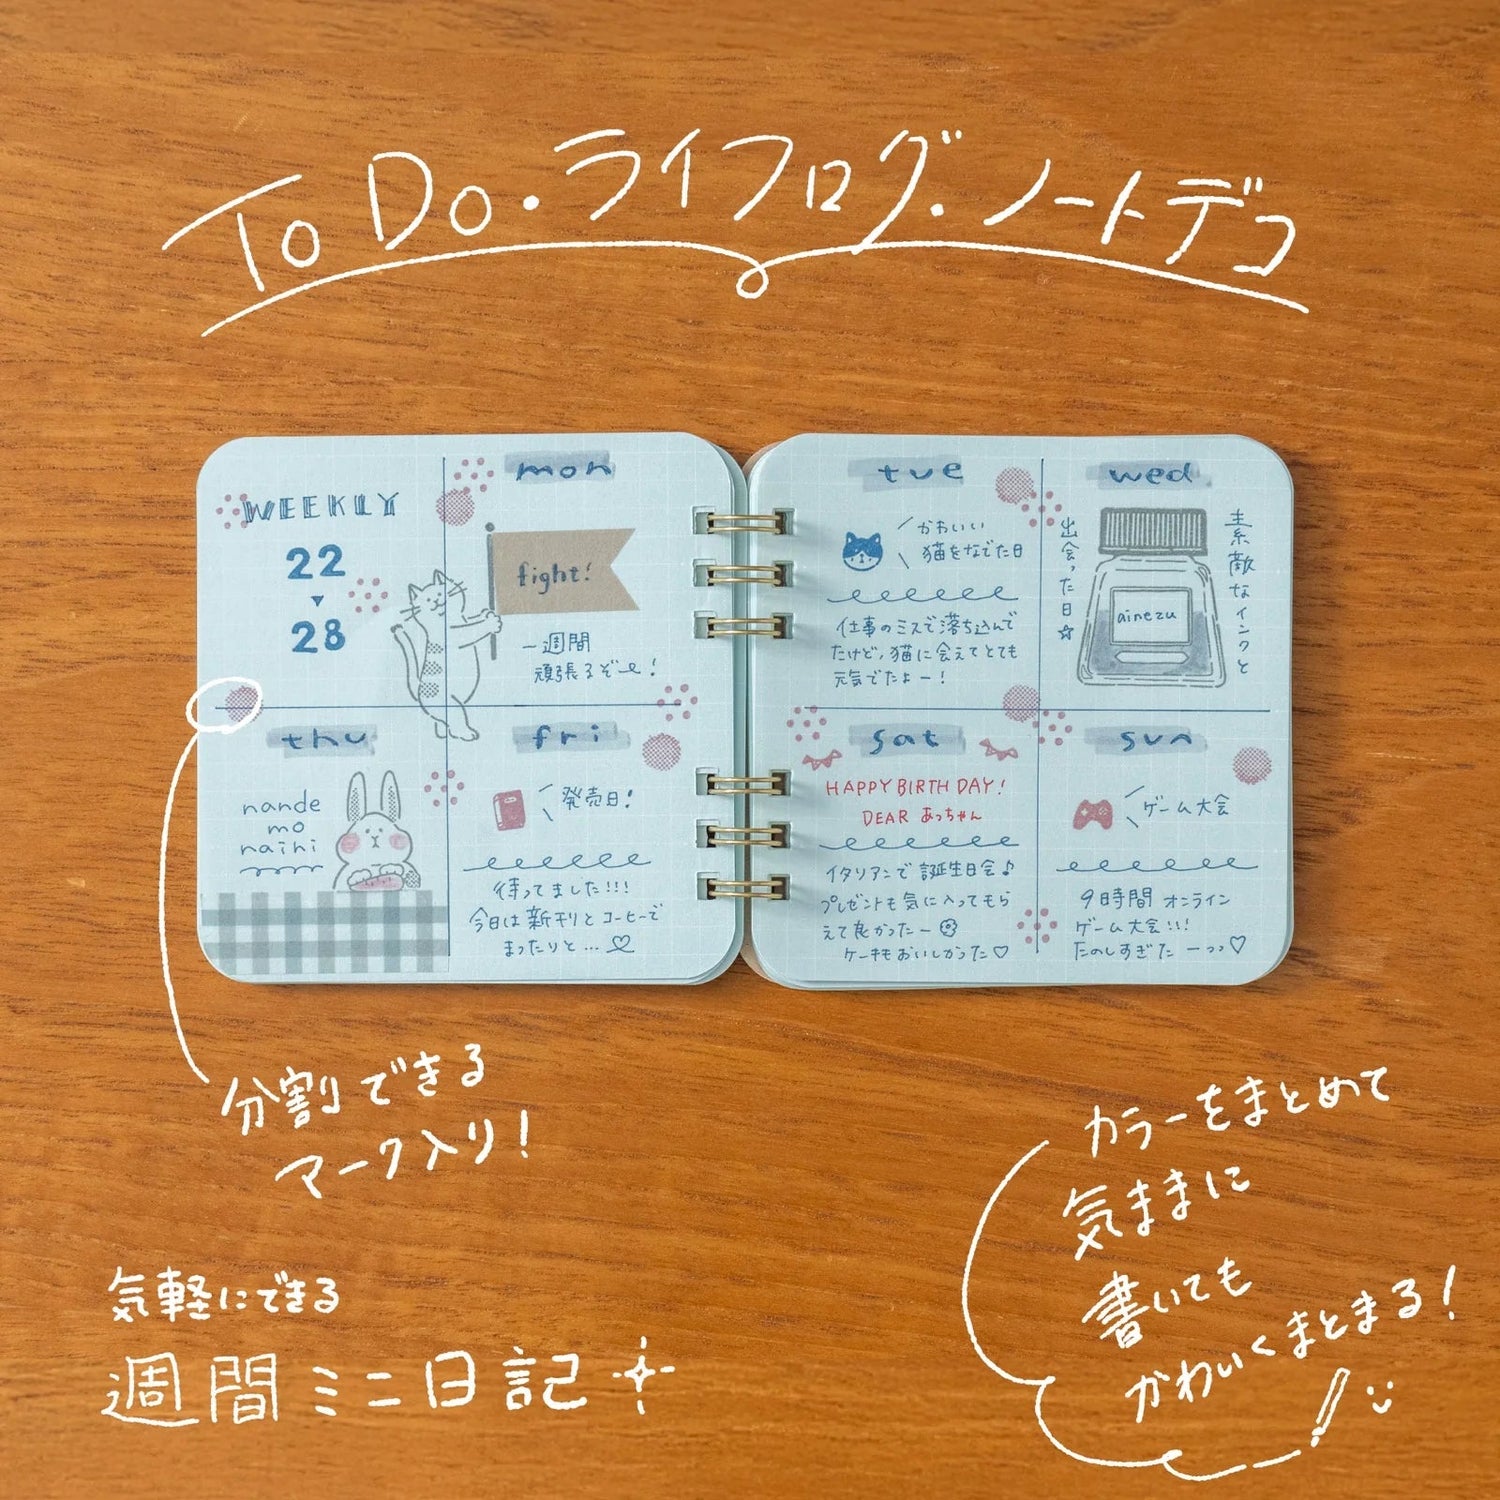 To Do・ライフログ・ノートデコ
WEEKLY
22
▼
28
mon
fight!
一週間
頑張るぞー!
thu
nande
mo
naihi
fri
発売日!
待ってました!!!
今日は新刊とコーヒーで
まったりと…♡
tue
かわいい
猫をなでた日
仕事のミスで落ち込んで
たけど、猫に会えてとても
元気でたよー!
wed
素敵なインクと
出会った日☆
ainezu
sat
HAPPY BIRTHDAY!
DEAR あっちゃん
イタリアンで誕生日会♪
プレゼントも気に入ってもら
えて良かったー
ケーキもおいしかった♡
sun
ゲーム大会
9時間オンライン
ゲーム大会!!!
たのしすぎたーっっ♡
分割できる
マーク入り!
気軽にできる
週間ミニ日記
カラーをまとめて
気ままに
書いても
かわいくまとまる!